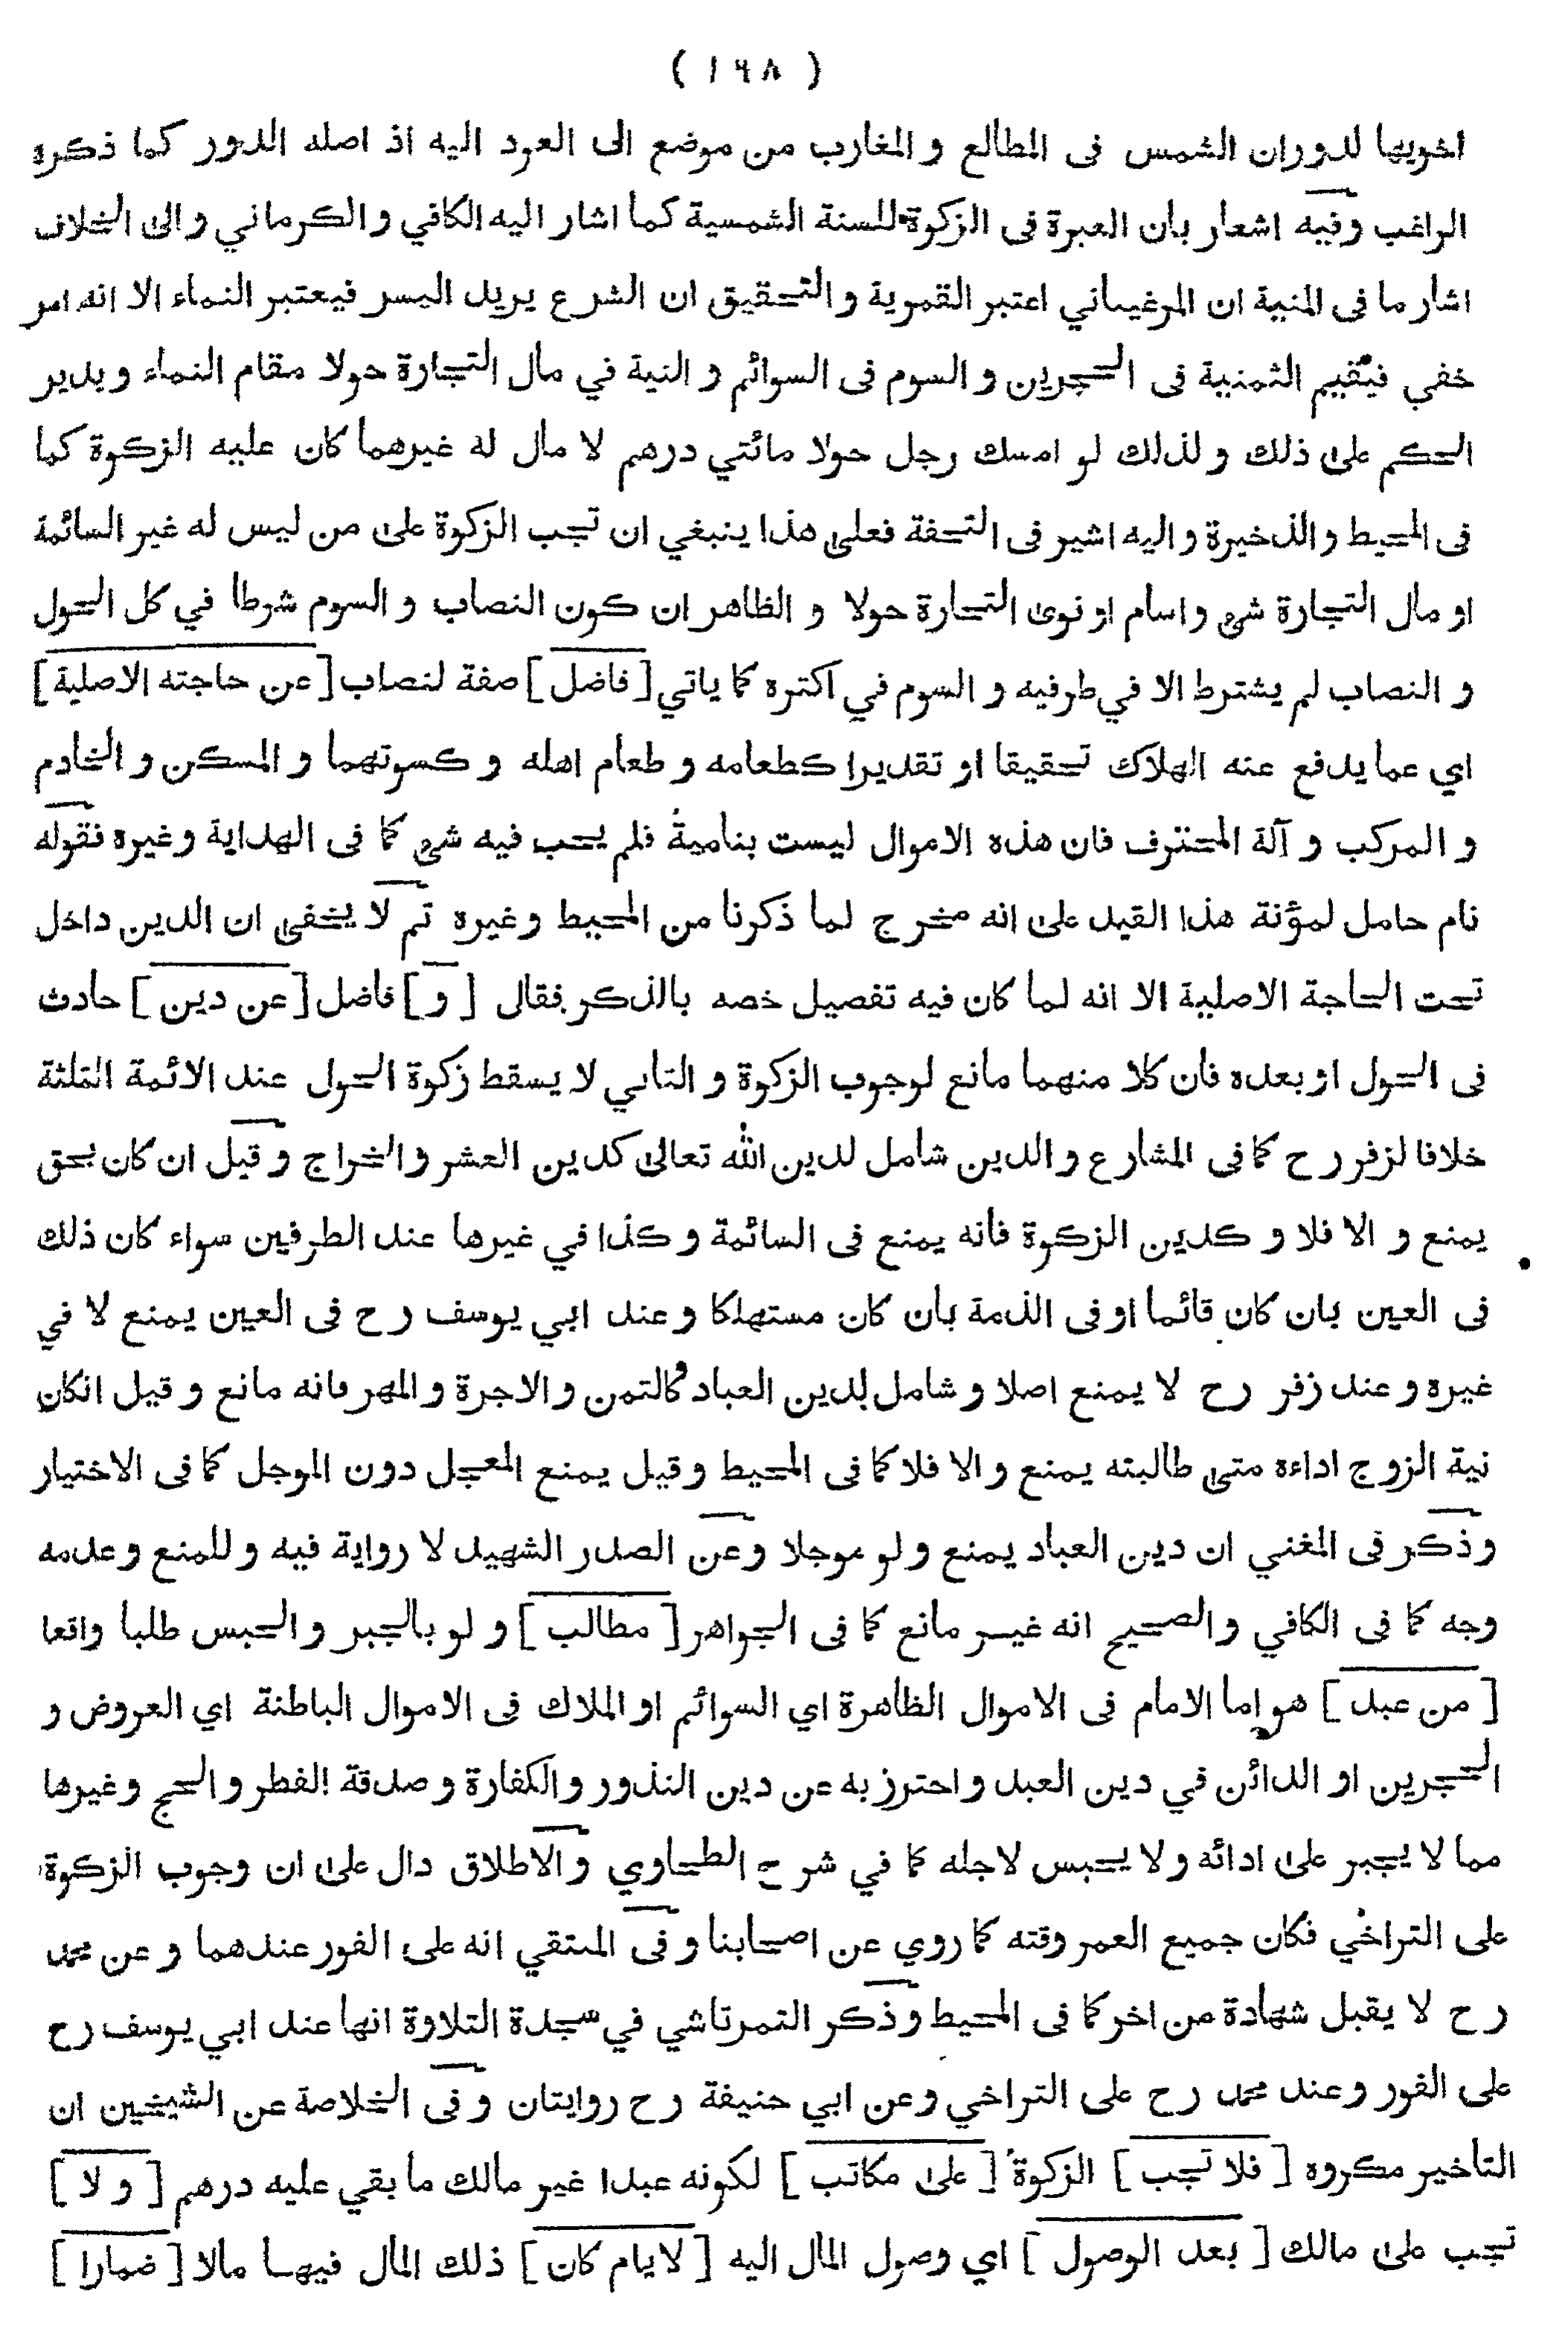 ( ١٩٨ )
اشويها لدوران الشمس فى المطالع و المغارب من موضع الى العود اليه اذ اصله الدور كما ذكره
الراغب وفيه اشعار بان العبرة فى الزكوة للسنة الشمسية كما اشار اليه الكافي و الكرماني و الى الخلاف
اشار ما فى المنية ان المرغيناني اعتبر القمرية و التحقيق ان الشرع يريد اليسر فيعتبر النماء الا انه امر
خفي فيُقيم الثمنية فى الحجرين و السوم فى السوائم و النية في مال التجارة حولا مقام النماء و يدير
الحكم على ذلك و لذلك لو امسك رجل حولا مائتي درهم لا مال له غيرهما كان عليه الزكوة كما
فى المحيط و الذخيرة و اليه اشير فى التحفة فعلى هذا ينبغي ان تجب الزكوة على من ليس له غير السائمة
او مال التجارة شئ و اسام او نوى التجارة حولا و الظاهر ان كون النصاب و السوم شرطا في كل الحول
و النصاب لم يشترط الا في طرفيه و السوم في اكثره كما ياتي [ فاضل ] صفة لنصاب [ عن حاجته الاصلية ]
اي عما يدفع عنه الهلاك تحقيقا او تقديرا كطعامه و طعام اهله و كسوتهما و المسكن و الخادم
و المركب و آلة المحترف فان هذه الاموال ليست بنامية فلم يجب فيه شئ كما فى الهداية و غيره فقوله
نام حامل لمؤنة هذا القيد على انه مخرج لما ذكرنا من المحيط و غيره ثم لا يخفى ان الدين داخل
تحت الحاجة الاصلية الا انه لما كان فيه تفصيل خصه بالذكر فقال [ و ] فاضل [ عن دين ] حادث
فى الحول او بعده فان كلا منهما مانع لوجوب الزكوة و الثاني لا يسقط زكوة الحول عند الائمة الثلثة
خلافا لزفر رح كما فى المشارع و الدين شامل لدين الله تعالى كدين العشر و الخراج و قيل ان كان بحق
يمنع و الا فلا و كدين الزكوة فانه يمنع فى السائمة و كذا في غيرها عند الطرفين سواء كان ذلك
فى العين بان كان قائما او فى الذمة بان كان مستهلكا و عند ابي يوسف رح فى العين يمنع لا في
غيره و عند زفر رح لا يمنع اصلا و شامل لدين العباد كالثمن و الاجرة و المهر فانه مانع و قيل انكان
نية الزوج اداءه متى طالبته يمنع و الا فلا كما فى المحيط و قيل يمنع المعجل دون الموجل كما فى الاختيار
و ذكر فى المغني ان دين العباد يمنع و لو موجلا و عن الصدر الشهيد لا رواية فيه و للمنع و عدمه
وجه كما فى الكافي و الصحيح انه غير مانع كما فى الجواهر [ مطالب ] و لو بالجبر و الحبس طلبا واقعا
[ من عبد ] هو اما الامام فى الاموال الظاهرة اي السوائم او الملاك فى الاموال الباطنة اي العروض و
الحجرين او الدائن في دين العبد و احترز به عن دين النذور و الكفارة و صدقة الفطر و الحج و غيرها
مما لا يجبر على ادائه و لا يحبس لاجله كما في شرح الطحاوي و الاطلاق دال على ان وجوب الزكوة
على التراخي فكان جميع العمر وقته كما روي عن اصحابنا و فى المنتقي انه على الفور عندهما و عن محمد
رح لا يقبل شهادة من اخر كما فى المحيط و ذكر التمرتاشي في سجدة التلاوة انها عند ابي يوسف رح
على الفور و عند محمد رح على التراخي و عن ابي حنيفة رح روايتان و فى الخلاصة عن الشيخين ان
التأخير مكروه [ فلا تجب ] الزكوة [ على مكاتب ] لكونه عبدا غير مالك ما بقي عليه درهم [ و لا ]
تجب على مالك [ بعد الوصول ] اي وصول المال اليه [ لايام كان ] ذلك المال فيها مالا [ ضمارا ]